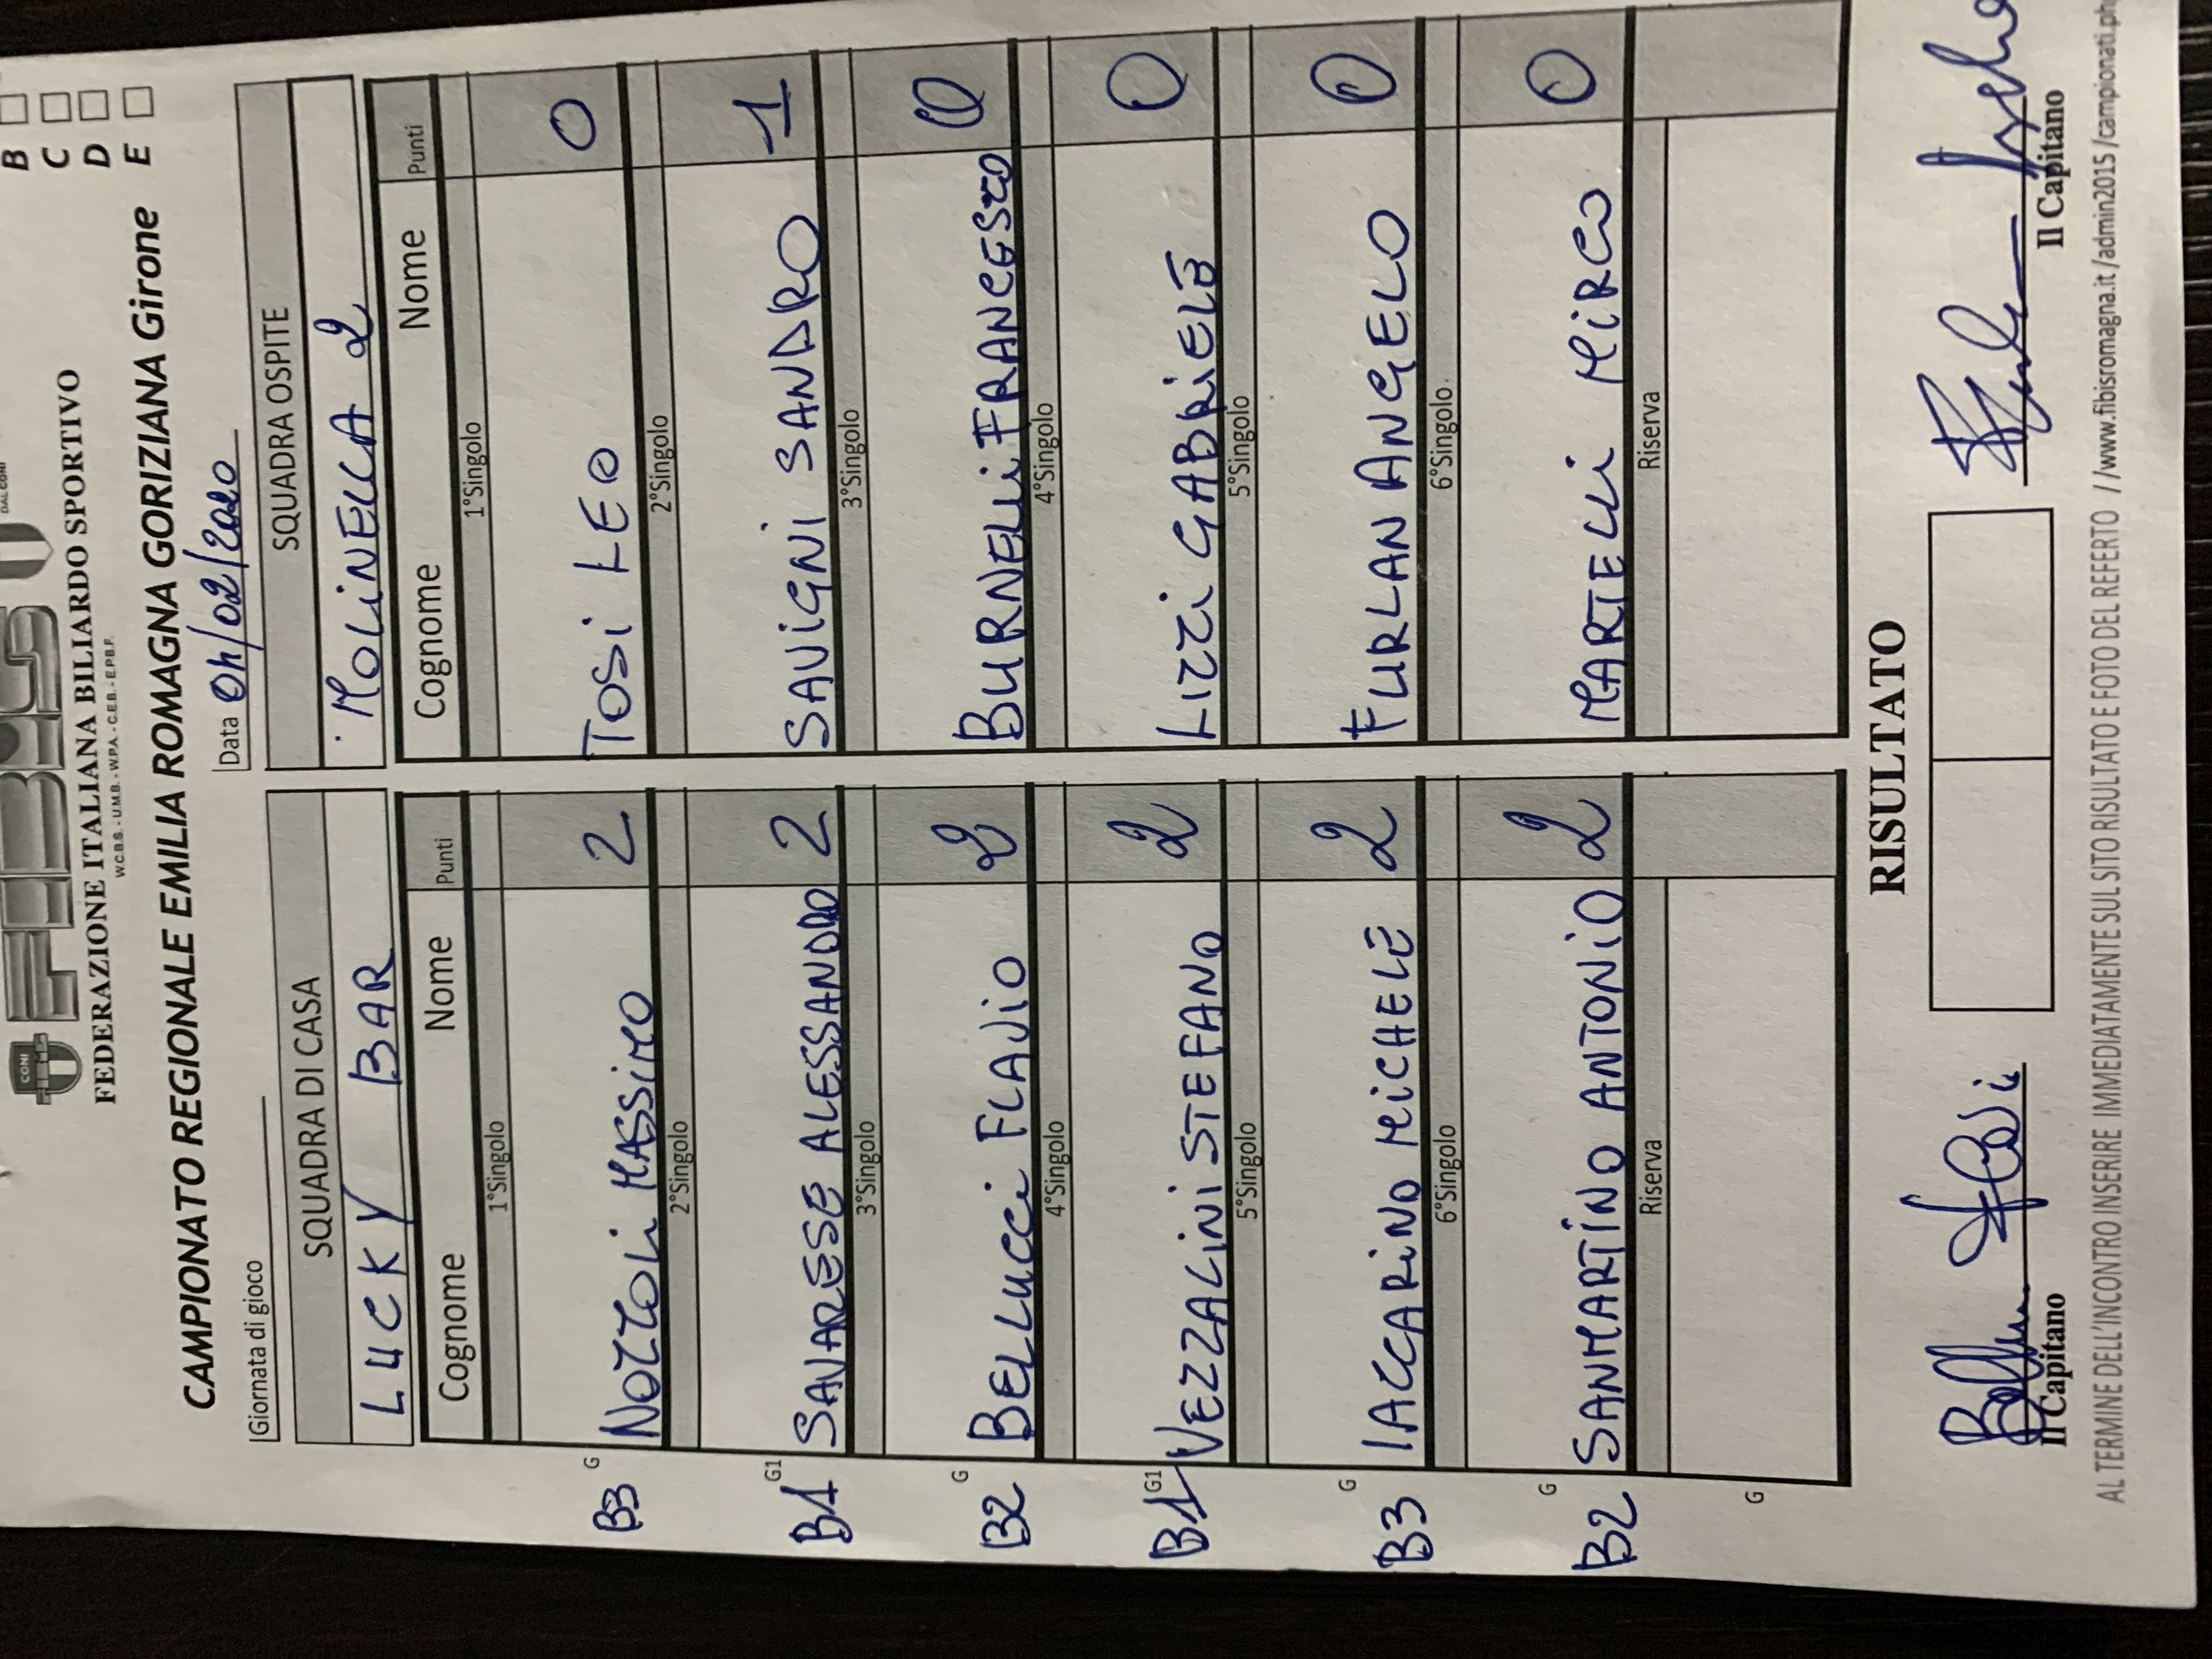 B
C
D
E
CONI
FEDERAZIONE ITALIANA BILIARDO SPORTIVO
W.C.B.S. - U.M.B. - W.P.A. - C.E.B. - E.P.B.F.
CAMPIONATO REGIONALE EMILIA ROMAGNA GORIZIANA Girone
Giornata di gioco Data 04/02/2020
SQUADRA DI CASA SQUADRA OSPITE
LUCKY BAR MOLINELLA 2
Cognome Nome Punti Cognome Nome Punti
1°Singolo 1°Singolo
B3 G NOZZOLI MASSIMO 2 TOSI LEO 0
2°Singolo 2°Singolo
B1 G1 SAVARESE ALESSANDRO 2 SAVIGNI SANDRO 1
3°Singolo 3°Singolo
B2 G BELLUCCI FLAVIO 2 BURNELLI FRANCESCO 0
4°Singolo 4°Singolo
B1 G1 VEZZALINI STEFANO 2 LIZZI GABRIELE 0
5°Singolo 5°Singolo
B3 G IACCARINO MICHELE 2 FURLAN ANGELO 0
6°Singolo 6°Singolo
B2 G SANMARTINO ANTONIO 2 MARTELLI MIRCO 0
Riserva Riserva
G
RISULTATO
Il Capitano Il Capitano
AL TERMINE DELL'INCONTRO INSERIRE IMMEDIATAMENTE SUL SITO RISULTATO E FOTO DEL REFERTO //www.fibisromagna.it/admin2015/campionati.ph